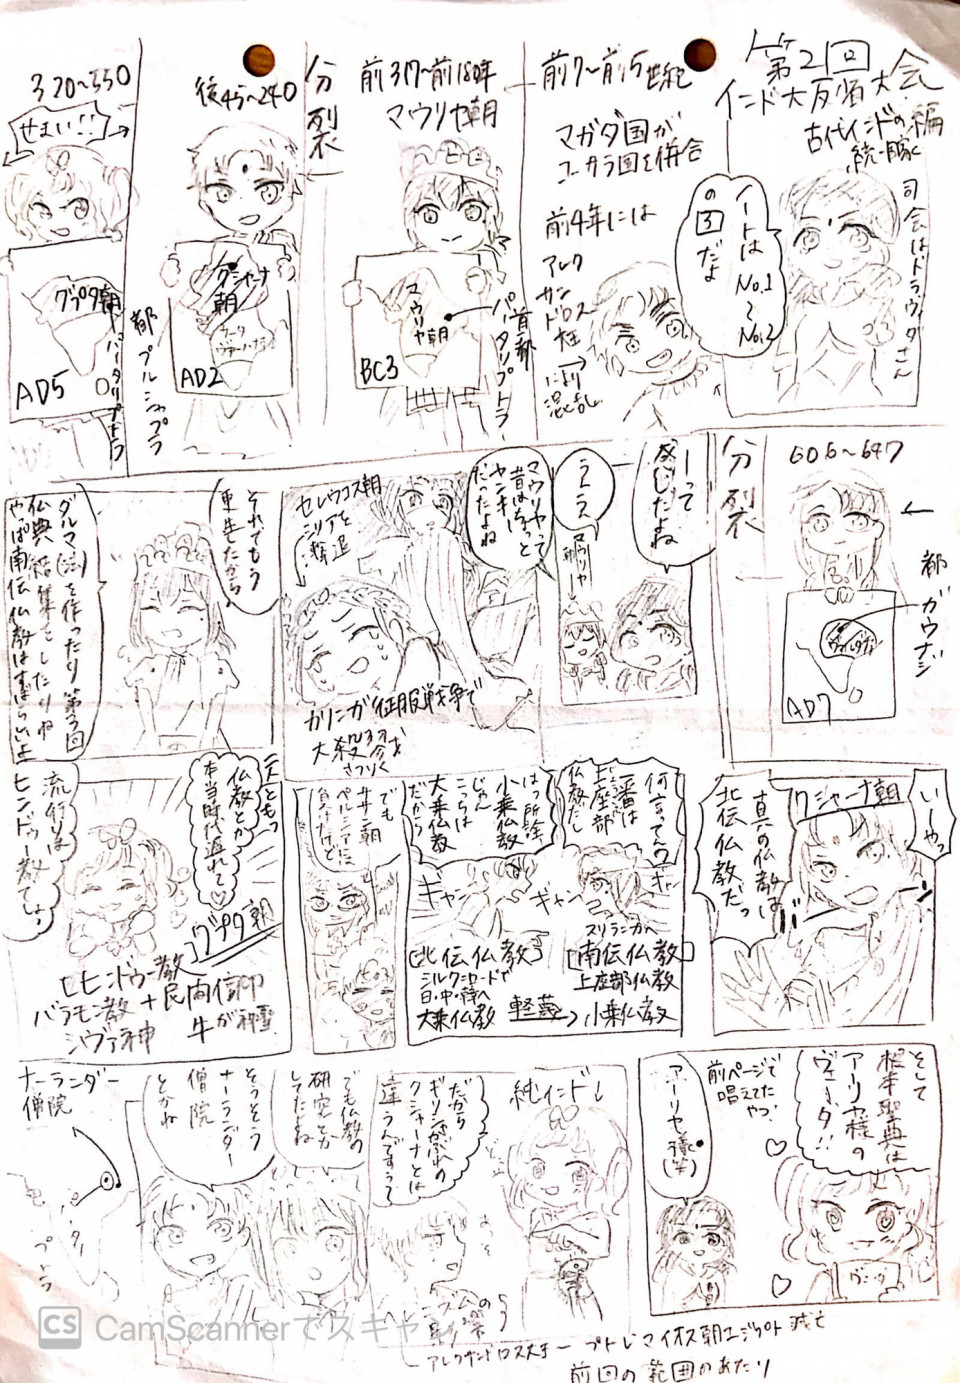 第2回
インド大反省大会
古代インドの編
続・豚
司会はドラヴィダさん
ノートは
No.1
〜
No.2
の3だよ
前7〜前5世紀
マガダ国が
コーサラ国を併合
前4年には
アレク
サン
ドロス
大王
により
混乱
前317〜前180年
マウリヤ朝
マウリヤ朝
首都
パータリプトラ
BC3
分裂
後45〜240
クシャーナ朝
サータ
ヴァーハナ
AD2
都プルシャプラ
320〜550
せまい!!
グプタ朝
AD5
パータリプトラ
606〜647
都
カウナジ
ヴァルダナ
AD7
分裂
ーって
感じだよね
うえぇ
マウリヤ朝→
マウリヤって
昔はもっと
ヤンキー
だったよね
セレウコス朝
シリアを
撃退
カリンガ征服戦争で
大殺戮
さつりく
それでもう
更生したから
ダルマ(法)を作ったり第3回
仏典結集をしたりね
やっぱ南伝仏教はすばらしいよ
いーやっ
クシャーナ朝
真の仏教は
北伝仏教だっ
バーン
何言ってんの
一番は
上座部
仏教だし
はっ所詮
小乗仏教
じゃん
こっちは
大乗仏教
だから
ギャン
ギャン
ギャー
スリランカへ
[南伝仏教]
上座部仏教
小乗仏教
[北伝仏教]
シルクロードや
日・中・韓へ
大乗仏教
軽蔑→
でも
ササン朝
ペルシアに
負けたけど
二人ともっ
仏教とか
本当時代遅れで♡
グプタ朝
流行りは
ヒンドゥー教でしょ
[ヒンドゥー教
バラモン教+民間信仰
シヴァ神
牛が神聖
そして
根本聖典は
アーリヤ様の
ヴェーダ!!
ヴェーダ
前ページで
唱えてた
やつ!
アーリヤ様(笑)
純インド↓
だから
ギリシャかぶれの
クシャーナとは
違うんですぅ
でも仏教の
研究とか
してたよね
そうそう
ナーランダー
僧院
とかね
ナーランダー
僧院
アレクサンドロス大王ー プトレマイオス朝エジプト滅亡
前回の範囲のあたり
CS CamScannerでスキャン